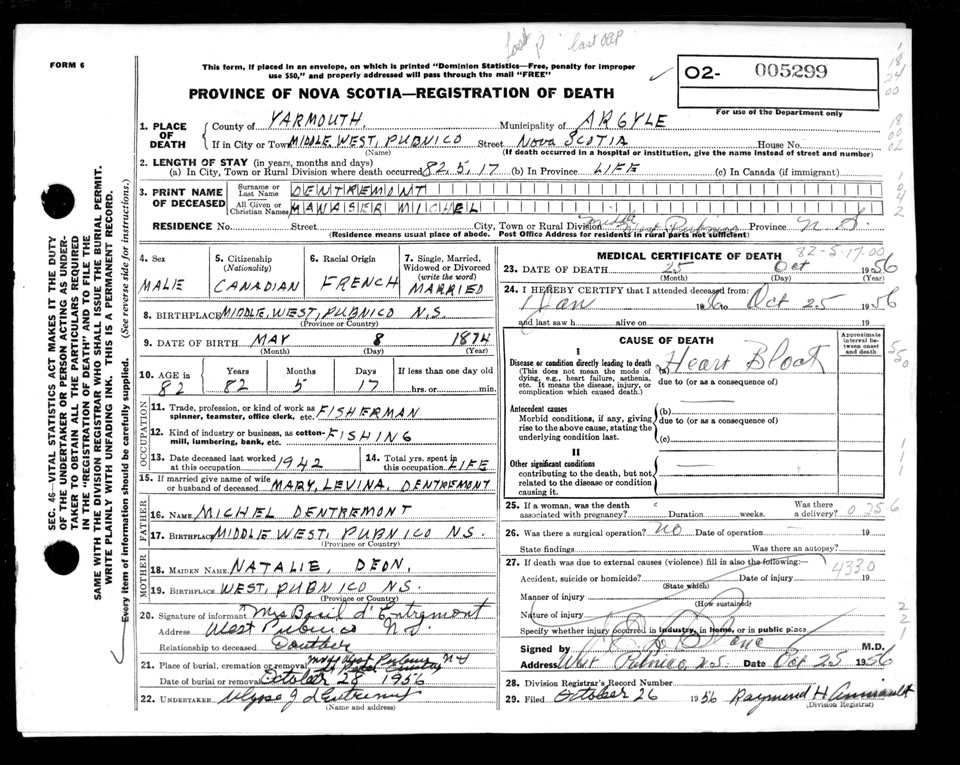 last
FORM 6
This form, if placed in an envelope, on which is printed "Dominion Statistics—Free, penalty for improper
use $50," and properly addressed will pass through the mail "FREE"
O2- 005299
For use of the Department only
PROVINCE OF NOVA SCOTIA—REGISTRATION OF DEATH
1. PLACE OF DEATH
County of YARMOUTH. Municipality of ARGYLE
If in City or Town MIDDLE, WEST, PUBNICO Street NOVA SCOTIA House No.
(Name) (If death occurred in a hospital or institution, give the name instead of street and number)
2. LENGTH OF STAY (in years, months and days)
(a) In City, Town or Rural Division where death occurred 82, 5, 17 (b) In Province LIFE (c) In Canada (if immigrant)
3. PRINT NAME OF DECEASED
Surname or Last Name DENTREMONT
All Given or Christian Names MANASER MICHEL
RESIDENCE No. Street City, Town or Rural Division Middle West Pubnico Province N.S.
(Residence means usual place of abode. Post Office Address for residents in rural parts not sufficient)
4. Sex
MALE
5. Citizenship
(Nationality)
CANADIAN
6. Racial Origin
FRENCH
7. Single, Married,
Widowed or Divorced
(write the word)
MARRIED
8. BIRTHPLACE MIDDLE, WEST, PUBNICO N.S.
(Province or Country)
9. DATE OF BIRTH MAY 8 1874
(Month) (Day) (Year)
10. AGE in 82
Years 82
Months 5
Days 17
If less than one day old
hrs. or min.
OCCUPATION
11. Trade, profession, or kind of work as
spinner, teamster, office clerk, etc. FISHERMAN
12. Kind of industry or business, as cotton-
mill, lumbering, bank, etc. FISHING
13. Date deceased last worked
at this occupation 1942
14. Total yrs. spent in
this occupation LIFE
15. If married give name of wife
or husband of deceased MARY, LEVINA, DENTREMONT
FATHER
16. NAME MICHEL DENTREMONT
17. BIRTHPLACE MIDDLE WEST, PUBNICO NS.
(Province or Country)
MOTHER
18. MAIDEN NAME NATALIE, DEON,
19. BIRTHPLACE WEST, PUBNICO NS.
(Province or Country)
20. Signature of informant Mrs Basil d'Entremont
Address West Pubnico N.S.
Relationship to deceased
21. Place of burial, cremation or removal
Date of burial or removal October 28 1956
22. UNDERTAKER Ulysse J d'Entremont
(Name and address)
MEDICAL CERTIFICATE OF DEATH 82-5-17.00
23. DATE OF DEATH 25 Oct 1956
(Month) (Day) (Year)
24. I HEREBY CERTIFY that I attended deceased from:
Jan 1956 to Oct 25 1956
and last saw h alive on 19
CAUSE OF DEATH
Approximate interval between onset and death
I
Disease or condition directly leading to death
(This does not mean the mode of
dying, e.g., heart failure, asthenia,
etc. It means the disease, injury, or
complication which caused death.)
(a) Heart Block
due to (or as a consequence of)
Antecedent causes
Morbid conditions, if any, giving
rise to the above cause, stating the
underlying condition last.
(b)
due to (or as a consequence of)
(c)
II
Other significant conditions
contributing to the death, but not
related to the disease or condition
causing it.
25. If a woman, was the death
associated with pregnancy? Duration weeks.
Was there
a delivery? 0 25 6
26. Was there a surgical operation? NO Date of operation 19
State findings Was there an autopsy?
27. If death was due to external causes (violence) fill in also the following:—
4330
Accident, suicide or homicide? Date of injury 19
(State which)
Manner of injury
(How sustained)
Nature of injury
Specify whether injury occurred in industry, in home, or in public place
Signed by M.D.
Address West Pubnico, N.S. Date Oct 25 1956
28. Division Registrar's Record Number
29. Filed October 26 1956 Raymond H Amirault
(Division Registrar)
SEC. 46—VITAL STATISTICS ACT MAKES IT THE DUTY
OF THE UNDERTAKER OR PERSON ACTING AS UNDER-
TAKER TO OBTAIN ALL THE PARTICULARS REQUIRED
IN THE "REGISTRATION OF DEATH" AND TO FILE THE
SAME WITH THE DIVISION REGISTRAR WHO SHALL ISSUE THE BURIAL PERMIT.
WRITE PLAINLY WITH UNFADING INK. THIS IS A PERMANENT RECORD.
Every item of information should be carefully supplied. (See reverse side for instructions.)